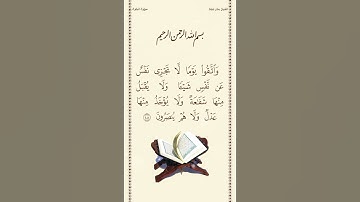 بسم الله الرحمن الرحيم
وَاتَّقُوا يَوْمًا لَّا تَجْزِي نَفْسٌ
عَن نَّفْسٍ شَيْئًا وَلَا يُقْبَلُ
مِنْهَا شَفَاعَةٌ وَلَا يُؤْخَذُ مِنْهَا
عَدْلٌ وَلَا هُمْ يُنصَرُونَ